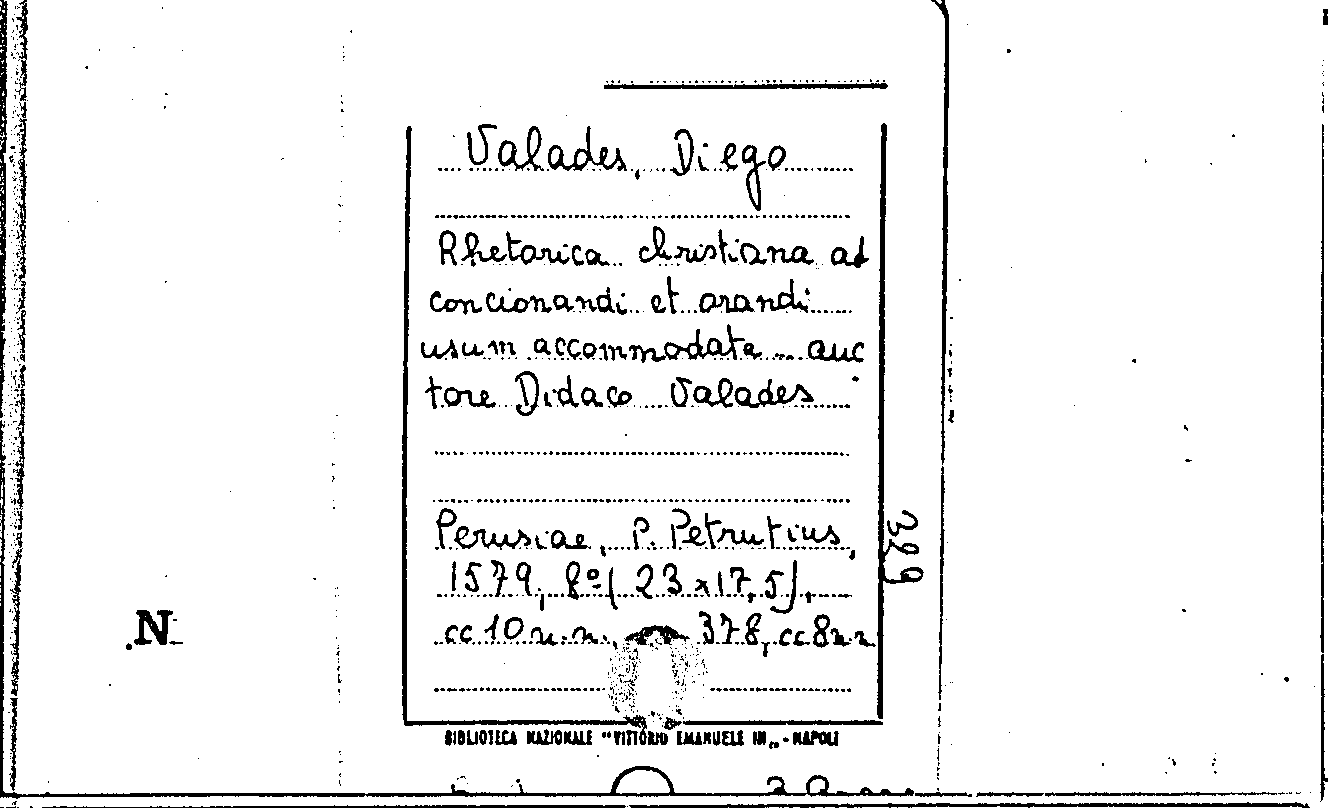 Valades, Diego
Rhetorica christiana ad
concionandi et orandi
usum accommodata ... auc
tore Didaco Valades
Perusiae, P. Petrutius,
1579, 8º (23 x 17,5),
cc 10 n.n., 378, cc 8 n n
329
N
BIBLIOTECA NAZIONALE "VITTORIO EMANUELE III" - NAPOLI